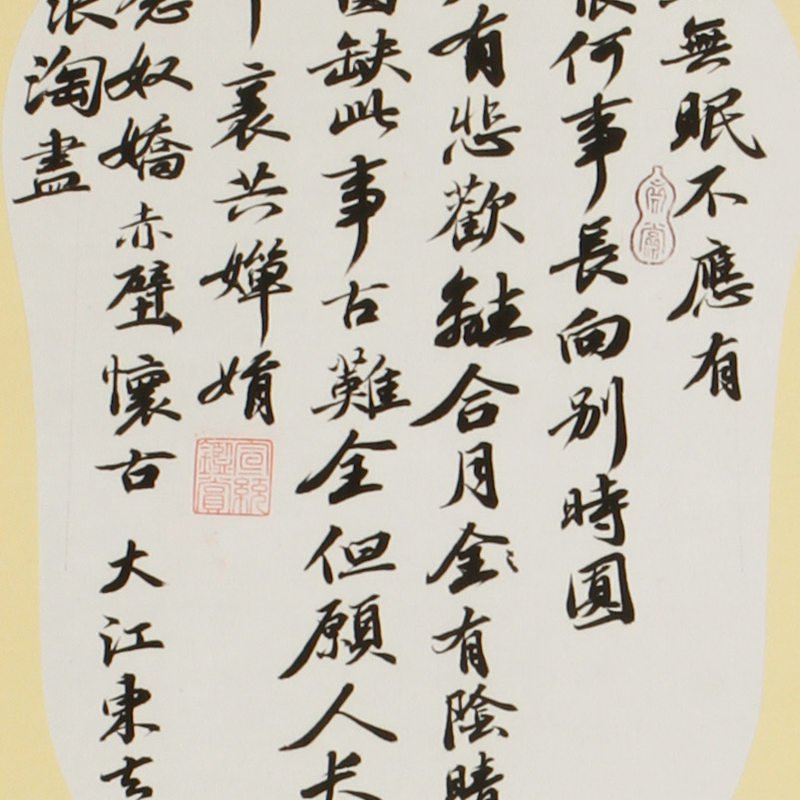 無眠不應有
恨何事長向别時圓
有悲歡離合月全有陰晴
圓缺此事古難全但願人長
裏共嬋娟
宣統鑑賞
念奴嬌赤壁懷古 大江東去
浪淘盡